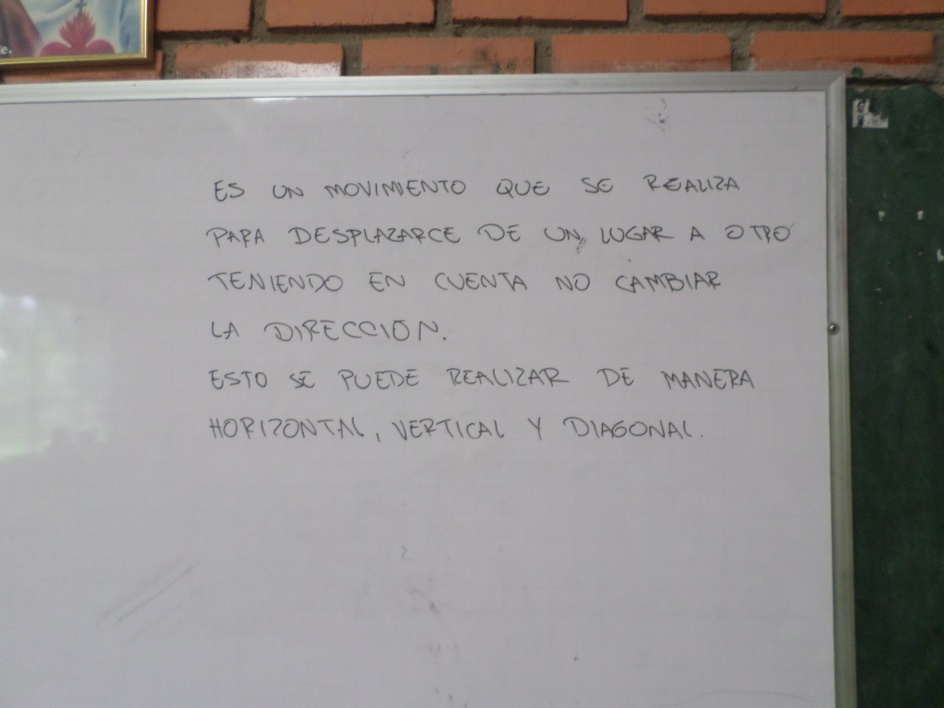 e.
ES UN MOVIMIENTO QUE SE REALIZA
PARA DESPLAZARCE DE UN LUGAR A OTRO
TENIENDO EN CUENTA NO CAMBIAR
LA DIRECCIÓN.
ESTO SE PUEDE REALIZAR DE MANERA
HORIZONTAL, VERTICAL Y DIAGONAL.